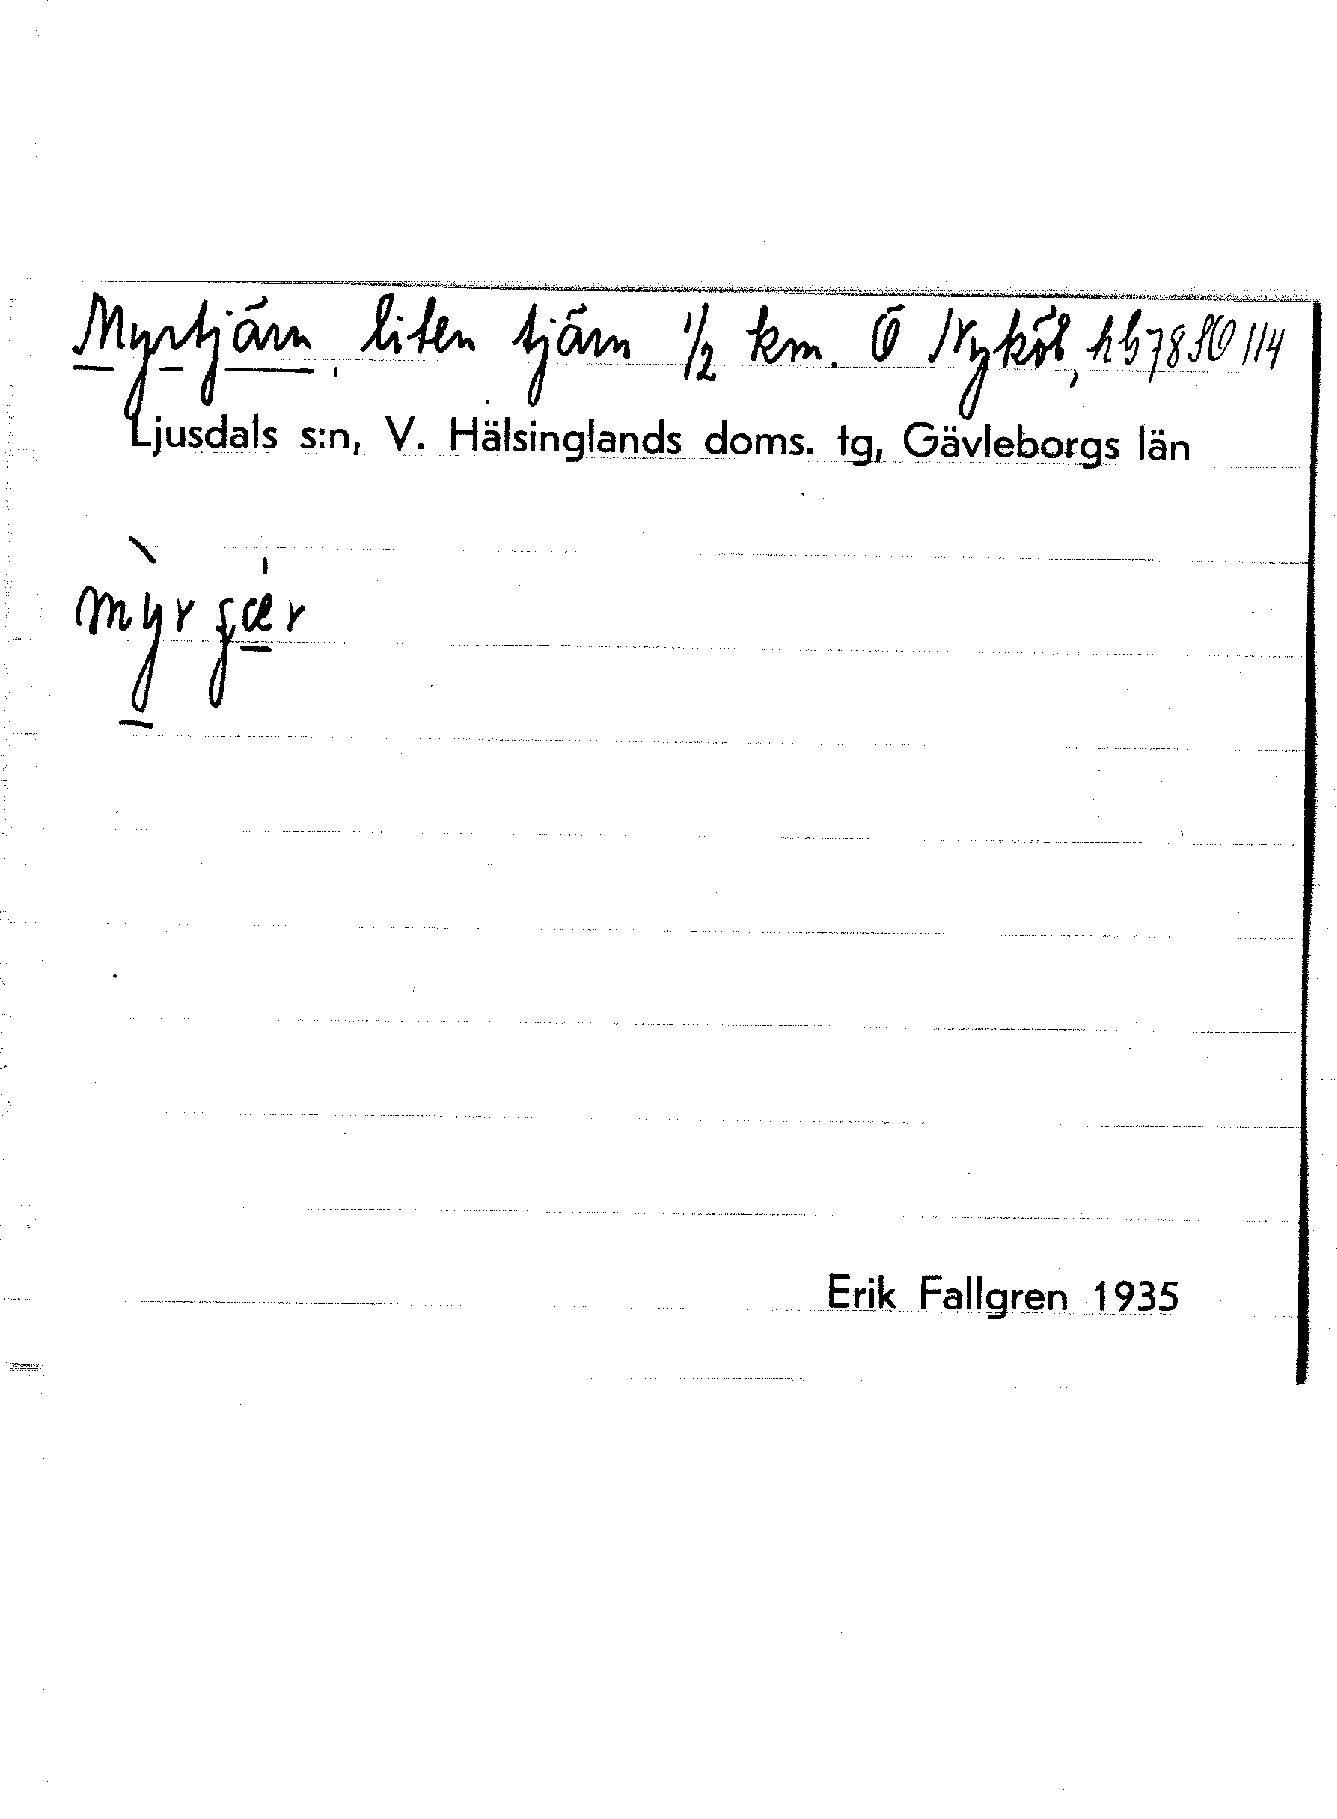 Myrtjärn, liten tjärn 1/2 km. Ö Nyköl, hb 78 SO 114
Ljusdals s:n, V. Hälsinglands doms. tg, Gävleborgs län
Erik Fallgren 1935